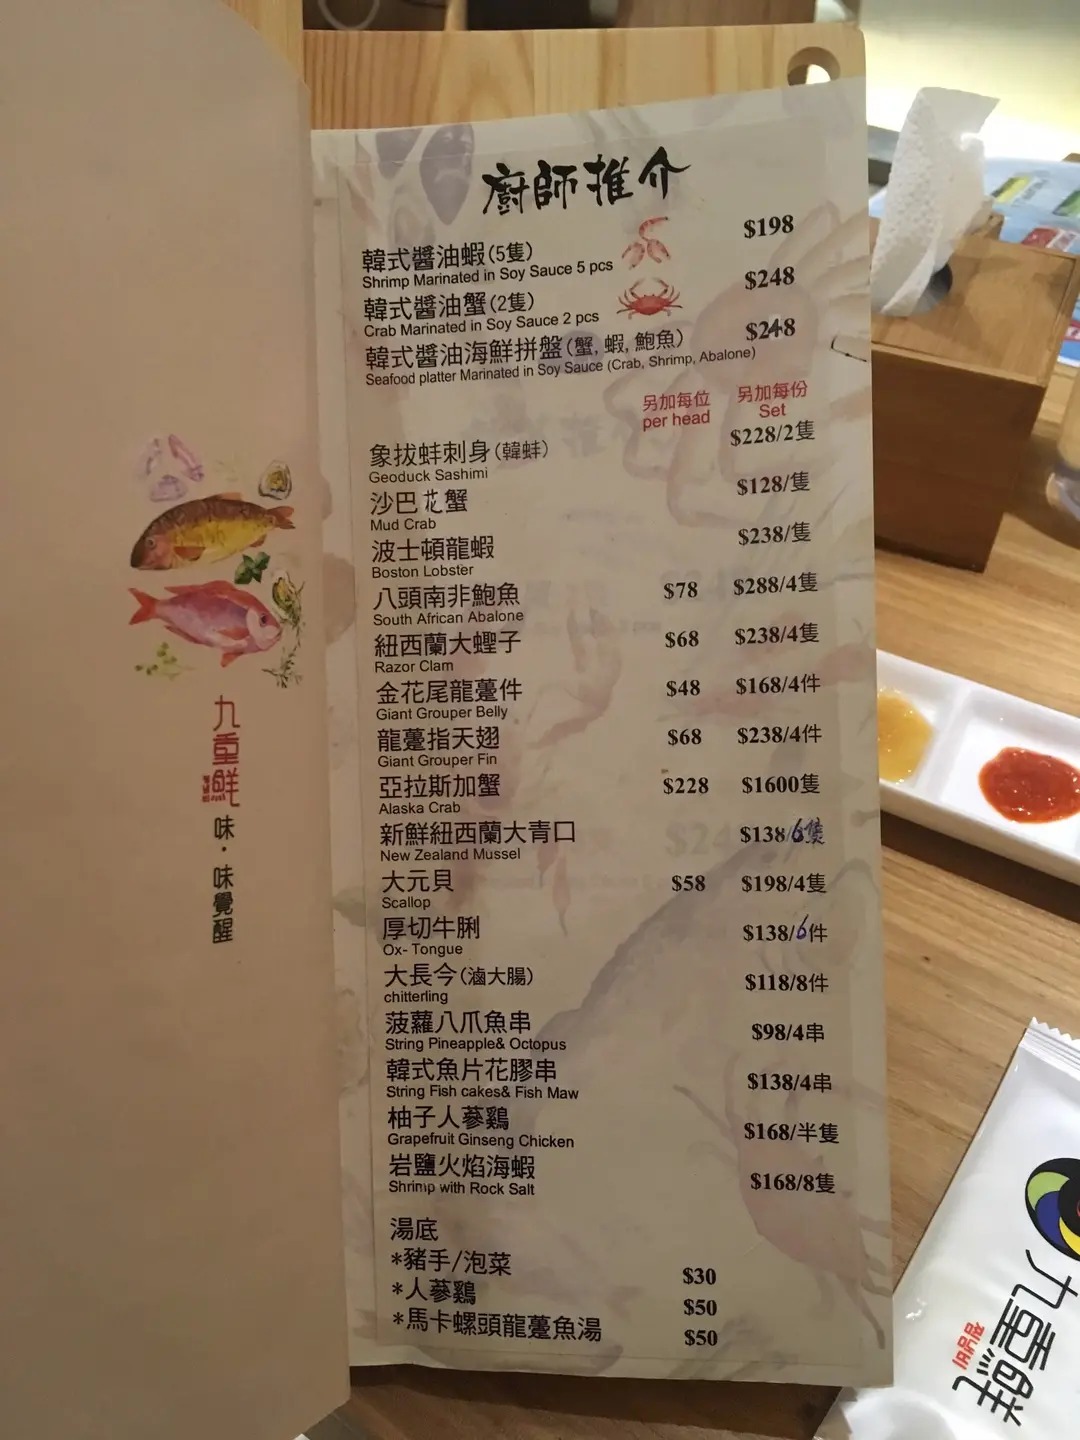 廚師推介
韓式醬油蝦(5隻) $198
Shrimp Marinated in Soy Sauce 5 pcs
韓式醬油蟹(2隻) $248
Crab Marinated in Soy Sauce 2 pcs
韓式醬油海鮮拼盤(蟹, 蝦, 鮑魚) $248
Seafood platter Marinated in Soy Sauce (Crab, Shrimp, Abalone)
另加每位 另加每份
per head Set
象拔蚌刺身(韓蚌) $228/2隻
Geoduck Sashimi
沙巴花蟹 $128/隻
Mud Crab
波士頓龍蝦 $238/隻
Boston Lobster
八頭南非鮑魚 $78 $288/4隻
South African Abalone
紐西蘭大蟶子 $68 $238/4隻
Razor Clam
金花尾龍躉件 $48 $168/4件
Giant Grouper Belly
龍躉指天翅 $68 $238/4件
Giant Grouper Fin
亞拉斯加蟹 $228 $1600隻
Alaska Crab
新鮮紐西蘭大青口 $138/6隻
New Zealand Mussel
大元貝 $58 $198/4隻
Scallop
厚切牛脷 $138/6件
Ox- Tongue
大長今(滷大腸) $118/8件
chitterling
菠蘿八爪魚串 $98/4串
String Pineapple& Octopus
韓式魚片花膠串 $138/4串
String Fish cakes& Fish Maw
柚子人蔘鷄 $168/半隻
Grapefruit Ginseng Chicken
岩鹽火焰海蝦 $168/8隻
Shrimp with Rock Salt
湯底
*豬手/泡菜 $30
*人蔘鷄 $50
*馬卡螺頭龍躉魚湯 $50
九重鮮
味・味覺醒
九重鮮